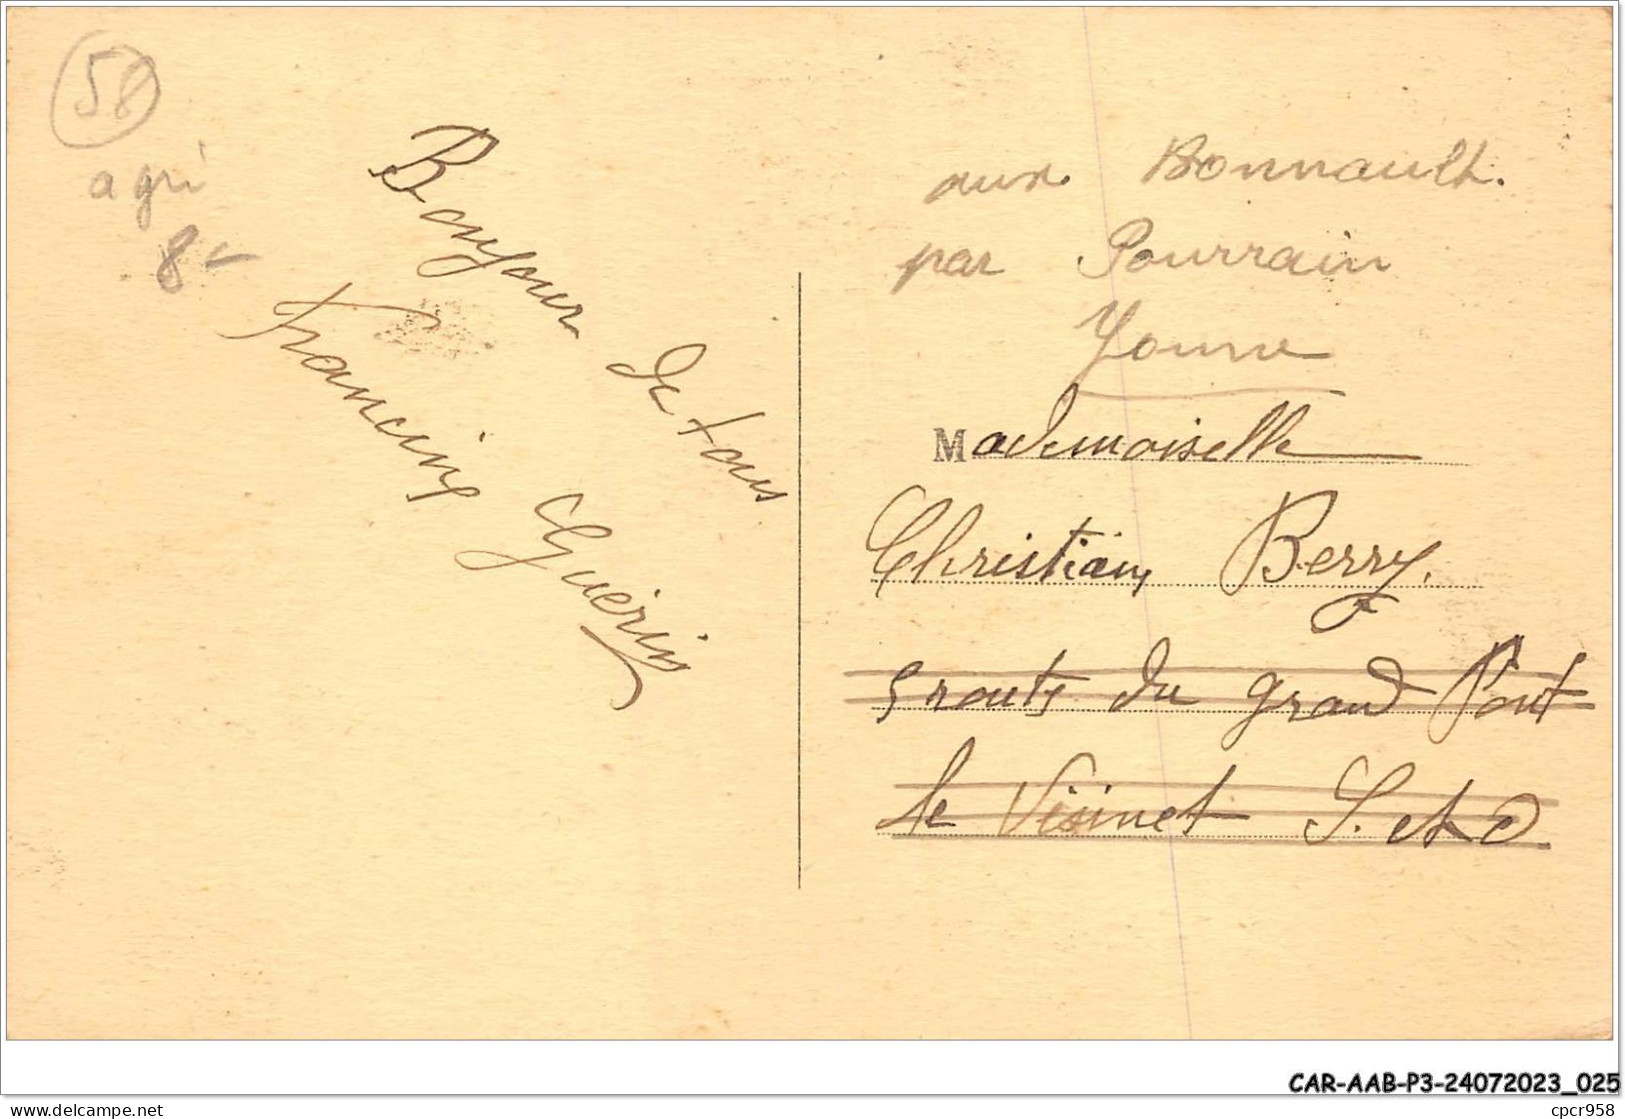 58
agri
8-
Bonjour de tous
Francine Guerin
aux Bonnault.
par Pourrain
Yonne
Mademoiselle
Christiane Berry.
5 route du grand Pont
le Vésinet S. et O
CAR-AAB-P3-24072023_025
delcampe.net
cpcr958